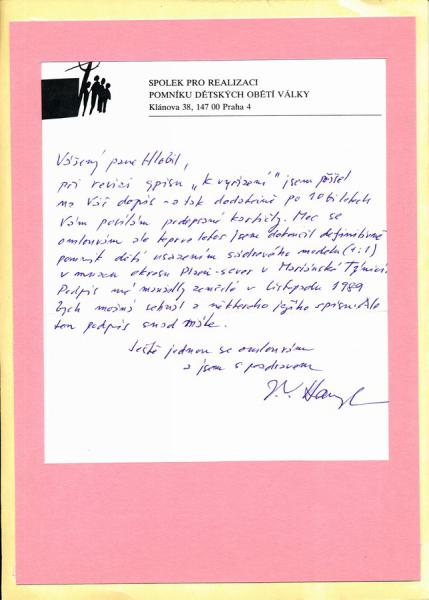 SPOLEK PRO REALIZACI
POMNÍKU DĚTSKÝCH OBĚTÍ VÁLKY
Klánova 38, 147 00 Praha 4
Vážený pane Hlobil,
při revizi spisu „K vyřízení" jsem přišel
na Váš dopis - a tak dodatečně po 10ti letech
Vám posílám podepsané kartičky. Moc se
omlouvám ale teprve letos jsem dokončil definitivně
pomník dětí osazením sádrového modelu (1:1)
v muzeu okresu Plzeň-sever v Mariánské Týnici.
Podpis mé manželky zemřelé v listopadu 1989
bych možná sehnal z některého jejího spisu. Ale
ten podpis snad máte.
Ještě jednou se omlouvám
a jsem s pozdravem